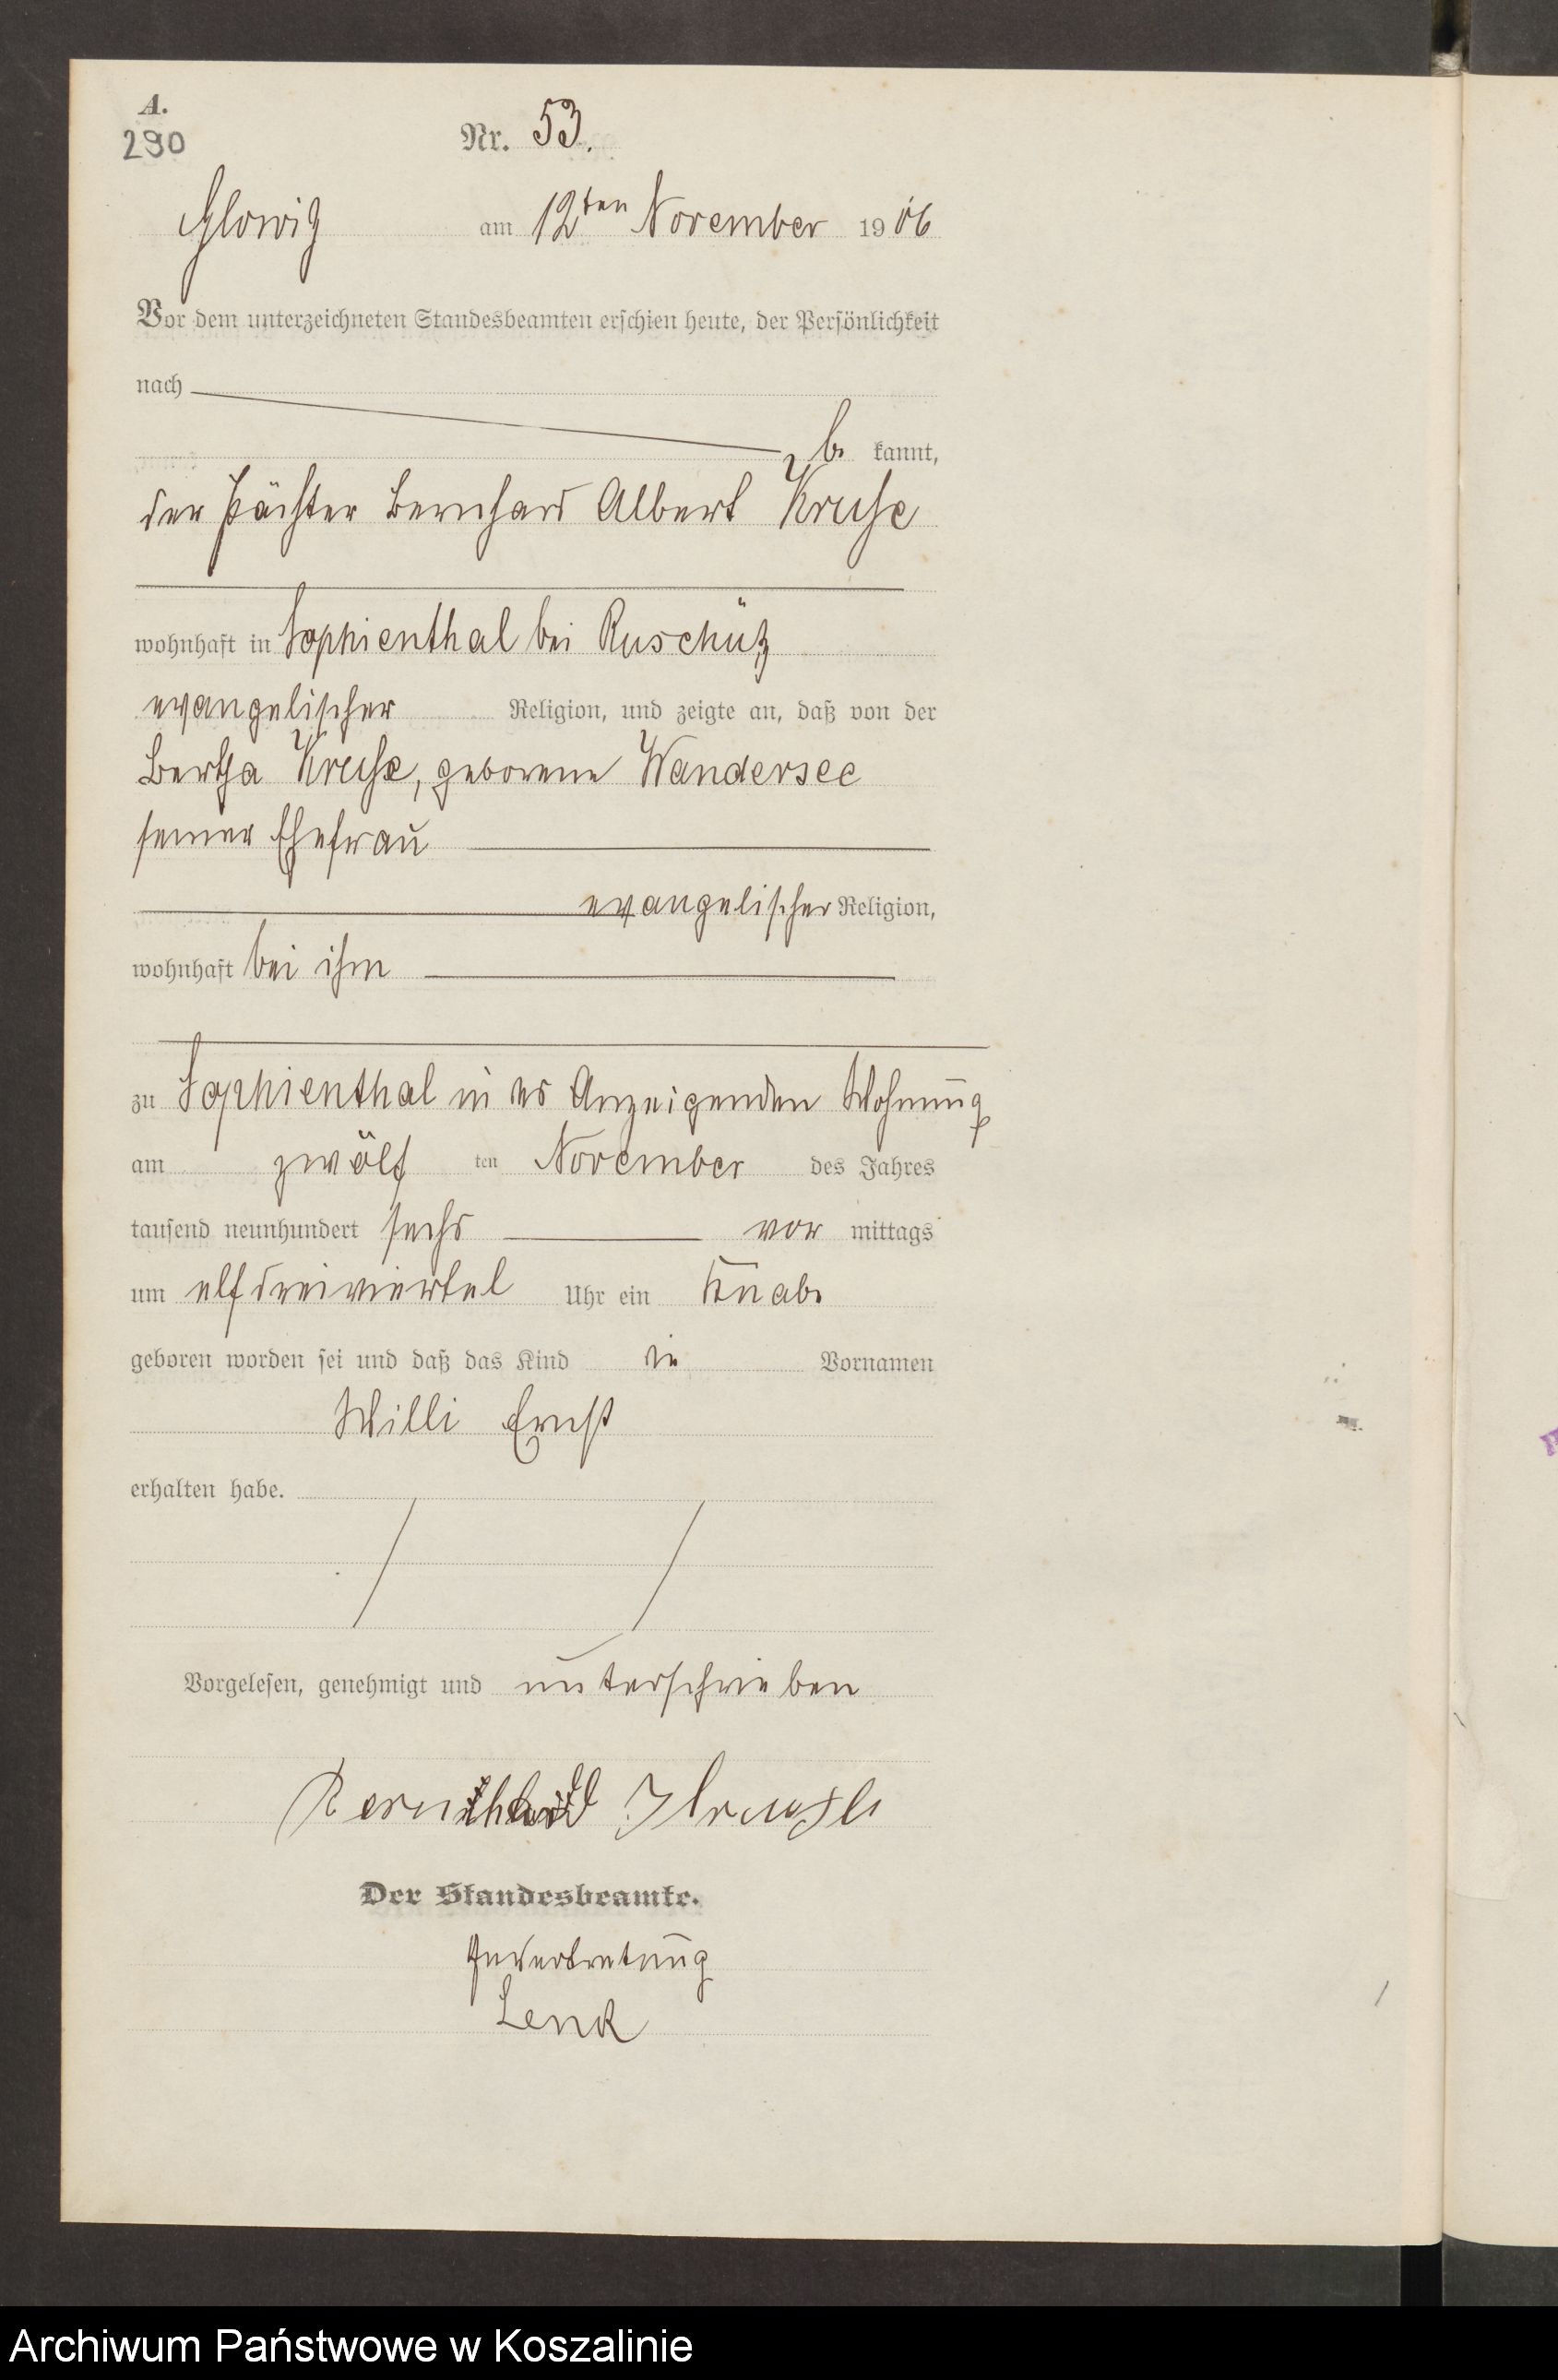 A.
290
Nr. 53.
Glowitz am 12ten November 1906
Vor dem unterzeichneten Standesbeamten erschien heute, der Persönlichkeit
nach
be kannt,
der Pächter Bernhard Albert Kruse
wohnhaft in Sophienthal bei Ruschütz
evangelischer Religion, und zeigte an, daß von der
Bertha Kruse, geborene Wandersee
seiner Ehefrau
evangelischer Religion,
wohnhaft bei ihm
zu Sophienthal in des Anzeigenden Wohnung
am zwölf ten November des Jahres
tausend neunhundert sechs vor mittags
um elf dreiviertel Uhr ein Knabe
geboren worden sei und daß das Kind die Vornamen
Willi Ernst
erhalten habe.
Vorgelesen, genehmigt und unterschrieben
Bernhard Kruse
Der Standesbeamte.
In Vertretung
Lenk
Archiwum Państwowe w Koszalinie